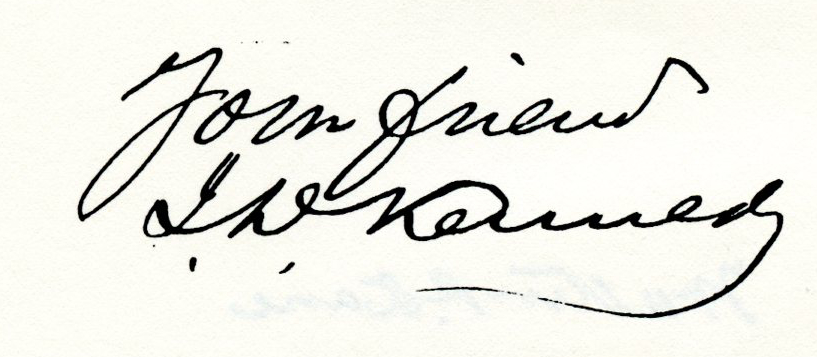 Your friend
J. W. Kennedy